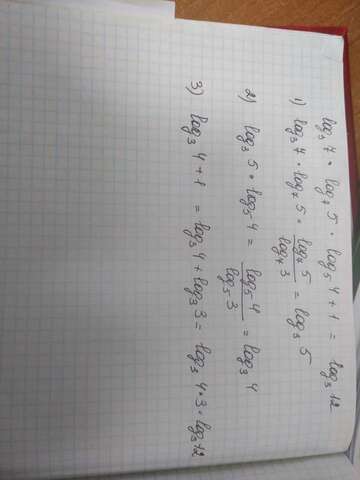 log₃ 7 • log₇ 5 • log₅ 4 + 1 = log₃ 12
1) log₃ 7 • log₇ 5 • log₇ 5 / log₇ 3 = log₃ 5
2) log₃ 5 • log₅ 4 = log₅ 4 / log₅ 3 = log₃ 4
3) log₃ 4 + 1 = log₃ 4 + log₃ 3 = log₃ 4 • 3 • log₃ 12